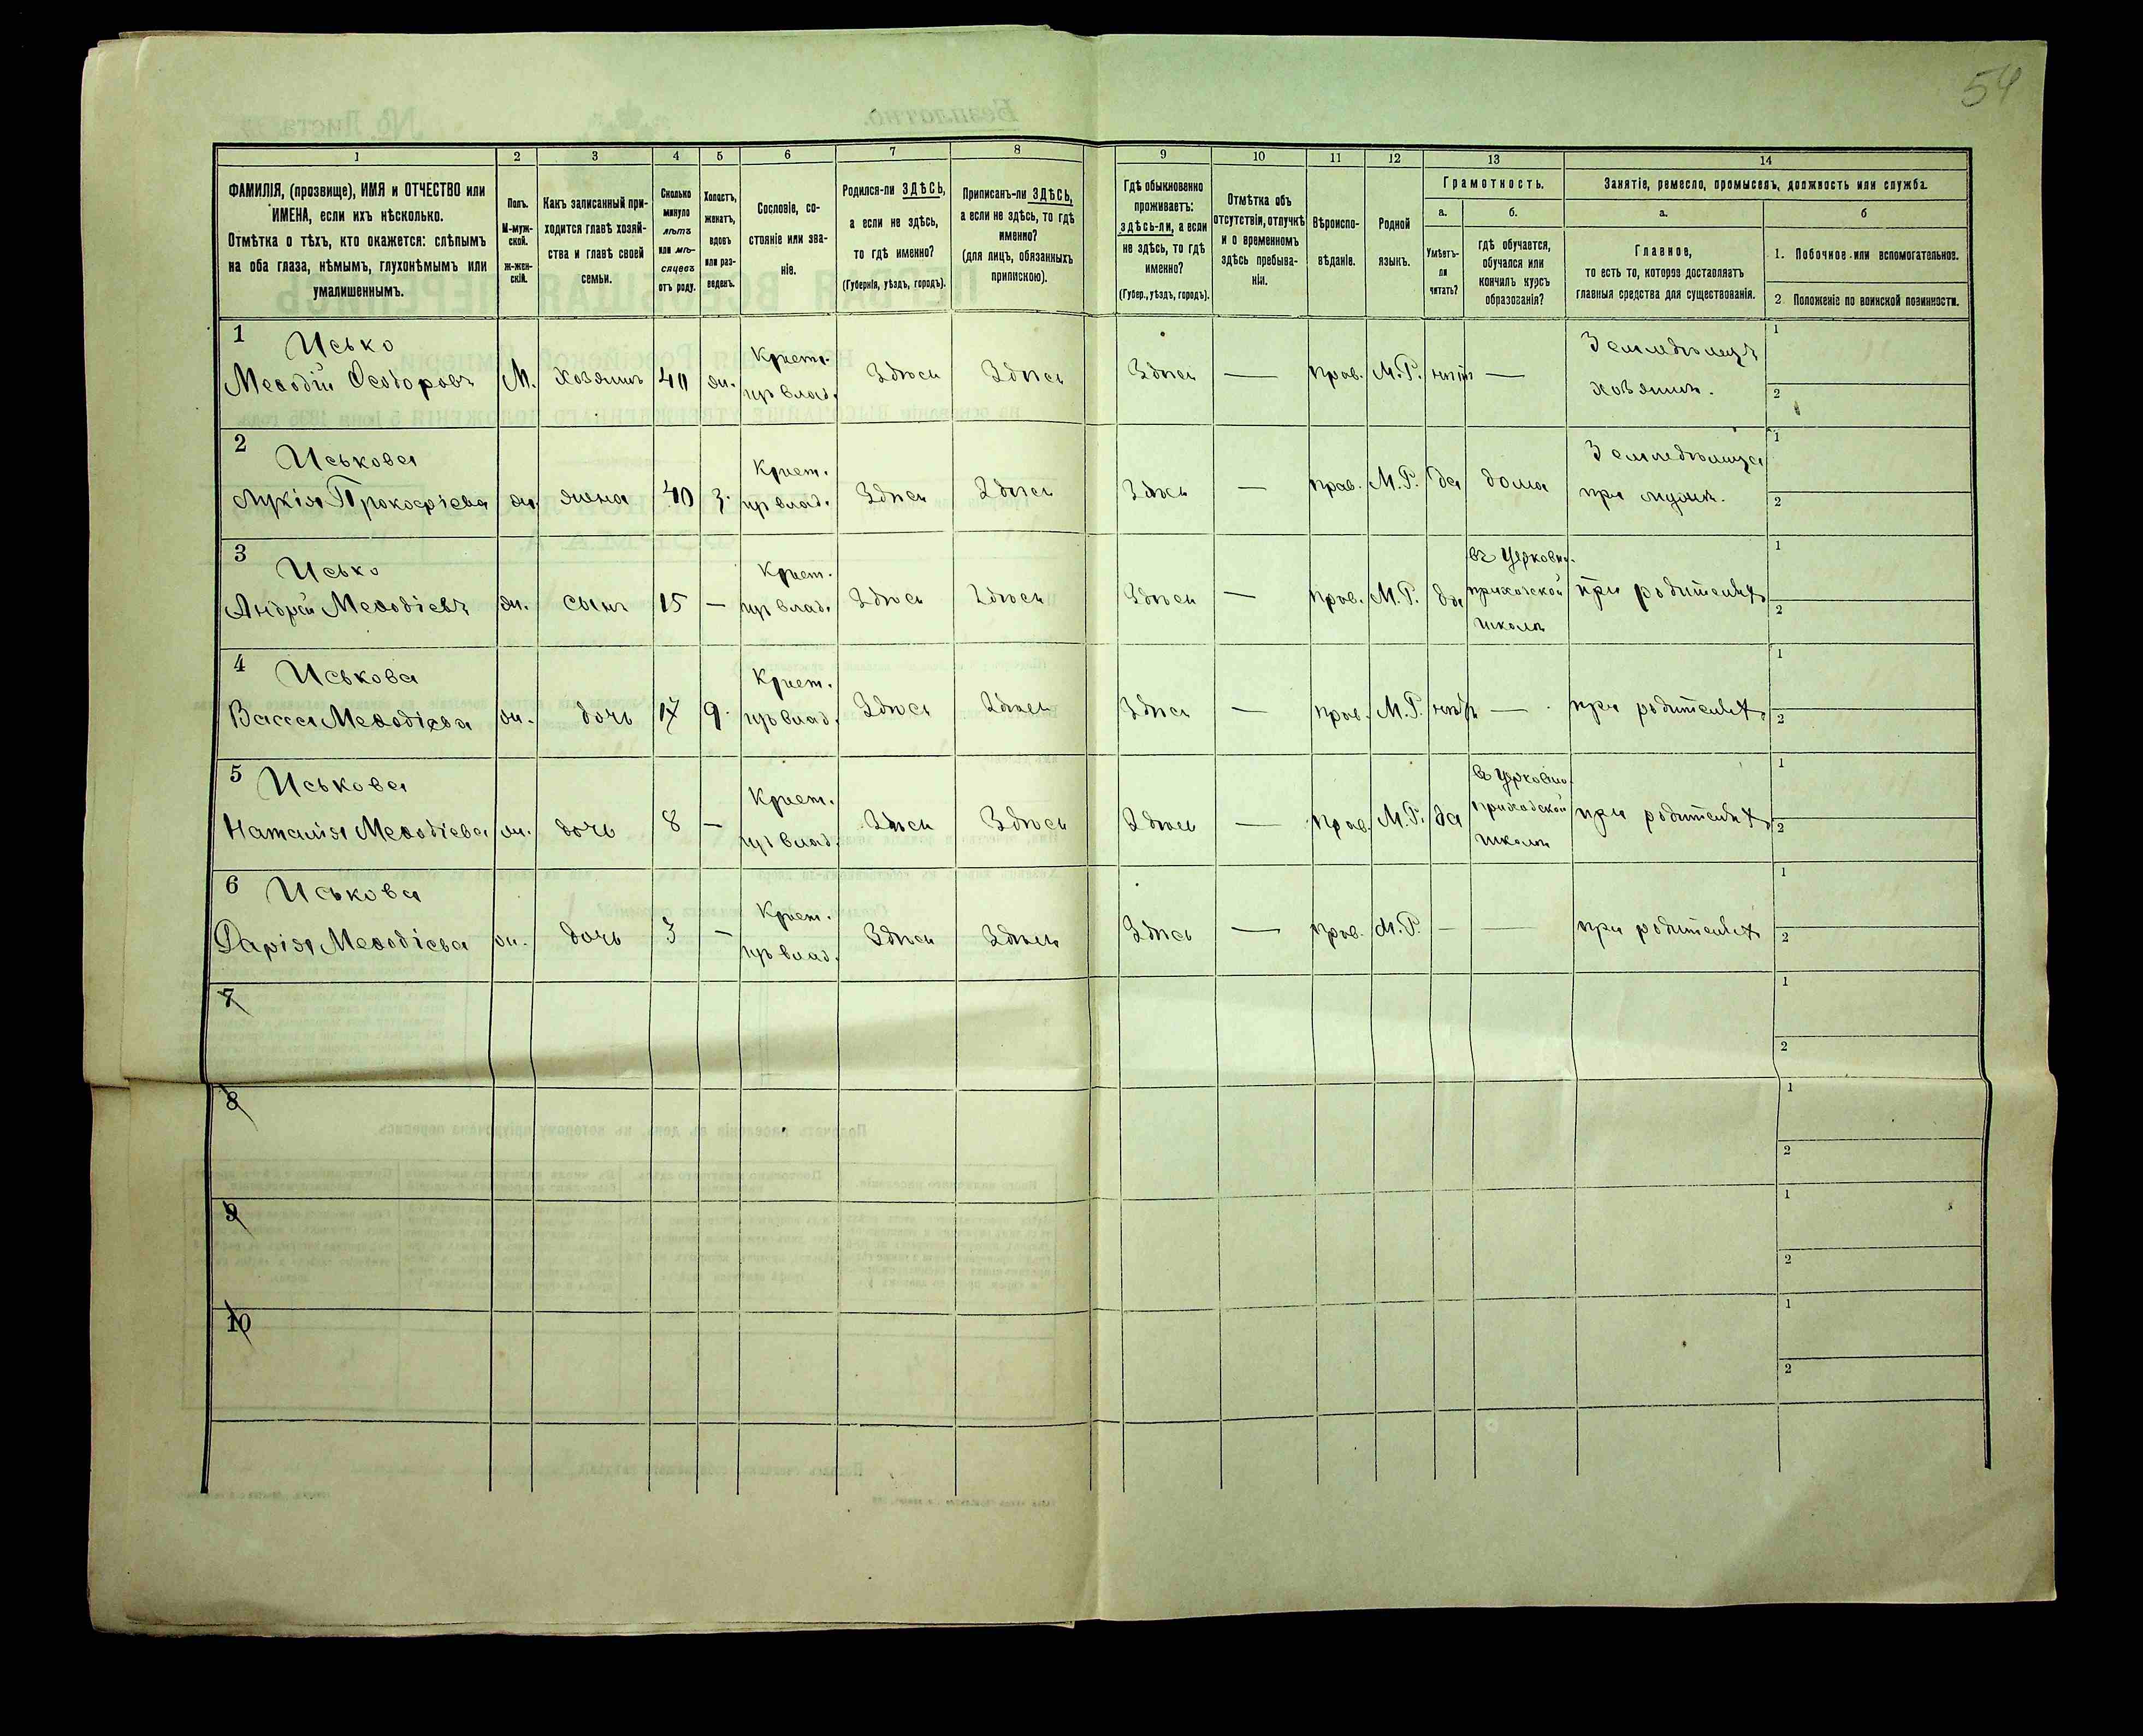 54
1
2
3
4
5
6
7
8
9
10
11
12
13
14
ФАМИЛІЯ, (прозвище), ИМЯ и ОТЧЕСТВО или
ИМЕНА, если ихъ нѣсколько.
Отмѣтка о тѣхъ, кто окажется: слѣпымъ
на оба глаза, нѣмымъ, глухонѣмымъ или
умалишеннымъ.
Полъ.
М-муж-
ской.
Ж-жен-
скій.
Какъ записанный при-
ходится главѣ хозяй-
ства и главѣ своей
семьи.
Сколько
минуло
лѣтъ
или мѣ-
сяцевъ
отъ роду.
Холостъ,
женатъ,
вдовъ
или раз-
веденъ.
Сословіе, со-
стояніе или зва-
ніе.
Родился-ли ЗДѢСЬ,
а если не здѣсь,
то гдѣ именно?
(Губернія, уѣздъ, городъ).
Приписанъ-ли ЗДѢСЬ,
а если не здѣсь, то гдѣ
именно?
(для лицъ, обязанныхъ
припискою).
Гдѣ обыкновенно
проживаетъ:
здѣсь-ли, а если
не здѣсь, то гдѣ
именно?
(Губер., уѣздъ, городъ).
Отмѣтка объ
отсутствіи, отлучкѣ
и о временномъ
здѣсь пребыва-
ніи.
Вѣроиспо-
вѣданіе.
Родной
языкъ.
Грамотность.
а.
Умѣетъ-
ли
читать?
б.
гдѣ обучается,
обучался или
кончилъ курсъ
образованія?
Занятіе, ремесло, промыселъ, должность или служба.
а.
Главное,
то есть то, которое доставляетъ
главныя средства для существованія.
б
1. Побочное или вспомогательное.
2 Положеніе по воинской повинности.
1 Исько
Меѳодій Ѳеодоровъ М. хозяинъ 40 ж. Крест. из влад. Здѣсь Здѣсь Здѣсь — прав. М.Р. нѣтъ — Земледѣлецъ хозяинъ. 1 2
2 Иськова
Лукія Прокофіева ж. жена 40 з. Крест. из влад. Здѣсь Здѣсь Здѣсь — прав. М.Р. да дома Земледѣлица при мужѣ. 1 2
3 Исько
Андрей Меѳодіевъ ж. сынъ 15 — Крест. из влад. Здѣсь Здѣсь Здѣсь — прав. М.Р. да въ Церковн. приходской школѣ при родителяхъ 1 2
4 Иськова
Васса Меѳодіева ж. дочь 17 Крест. из влад. Здѣсь Здѣсь Здѣсь — прав. М.Р. нѣтъ — при родителяхъ 1 2
5 Иськова
Наталія Меѳодіева ж. дочь 8 — Крест. из влад. Здѣсь Здѣсь Здѣсь — прав. М.Р. да в Церковно приходской школѣ при родителяхъ 1 2
6 Иськова
Дарія Меѳодіева ж. дочь 3 — Крест. из влад. Здѣсь Здѣсь Здѣсь — прав. М.Р. — — при родителяхъ 1 2
7 1 2
8 1 2
9 1 2
10 1 2